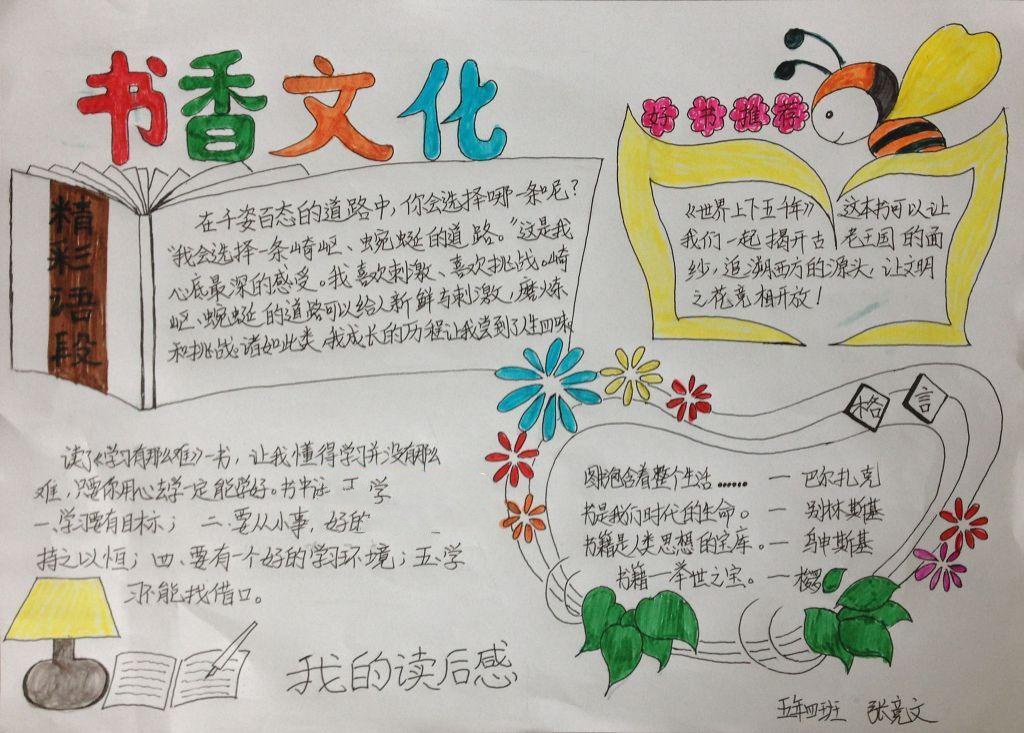 书香文化
精彩语段
在千姿百态的道路中，你会选择哪一条呢？
“我会选择一条崎岖、蜿蜒的道路。”这是我
心底最深的感受。我喜欢刺激、喜欢挑战。崎
岖、蜿蜒的道路可以给人新鲜与刺激，磨炼
和挑战。诸如此类，我成长的历程让我尝到了人生四味
好书推荐
《世界上下五千年》这本书可以让
我们一起揭开古老王国的面
纱，追溯西方的源头，让文明
之花竞相开放！
格言
图书包含着整个生活……—巴尔扎克
书是我们时代的生命。—别林斯基
书籍是人类思想的宝库。—乌申斯基
书籍—举世之宝。—梭罗
读了《学习有那么难》一书，让我懂得学习并没有那么
难，只要你用心去学一定能学好。书中
一、学习要有目标；二、要从小事，好的
持之以恒；四、要有一个好的学习环境；五、学
习不能找借口。
我的读后感
五年四班 张竞文